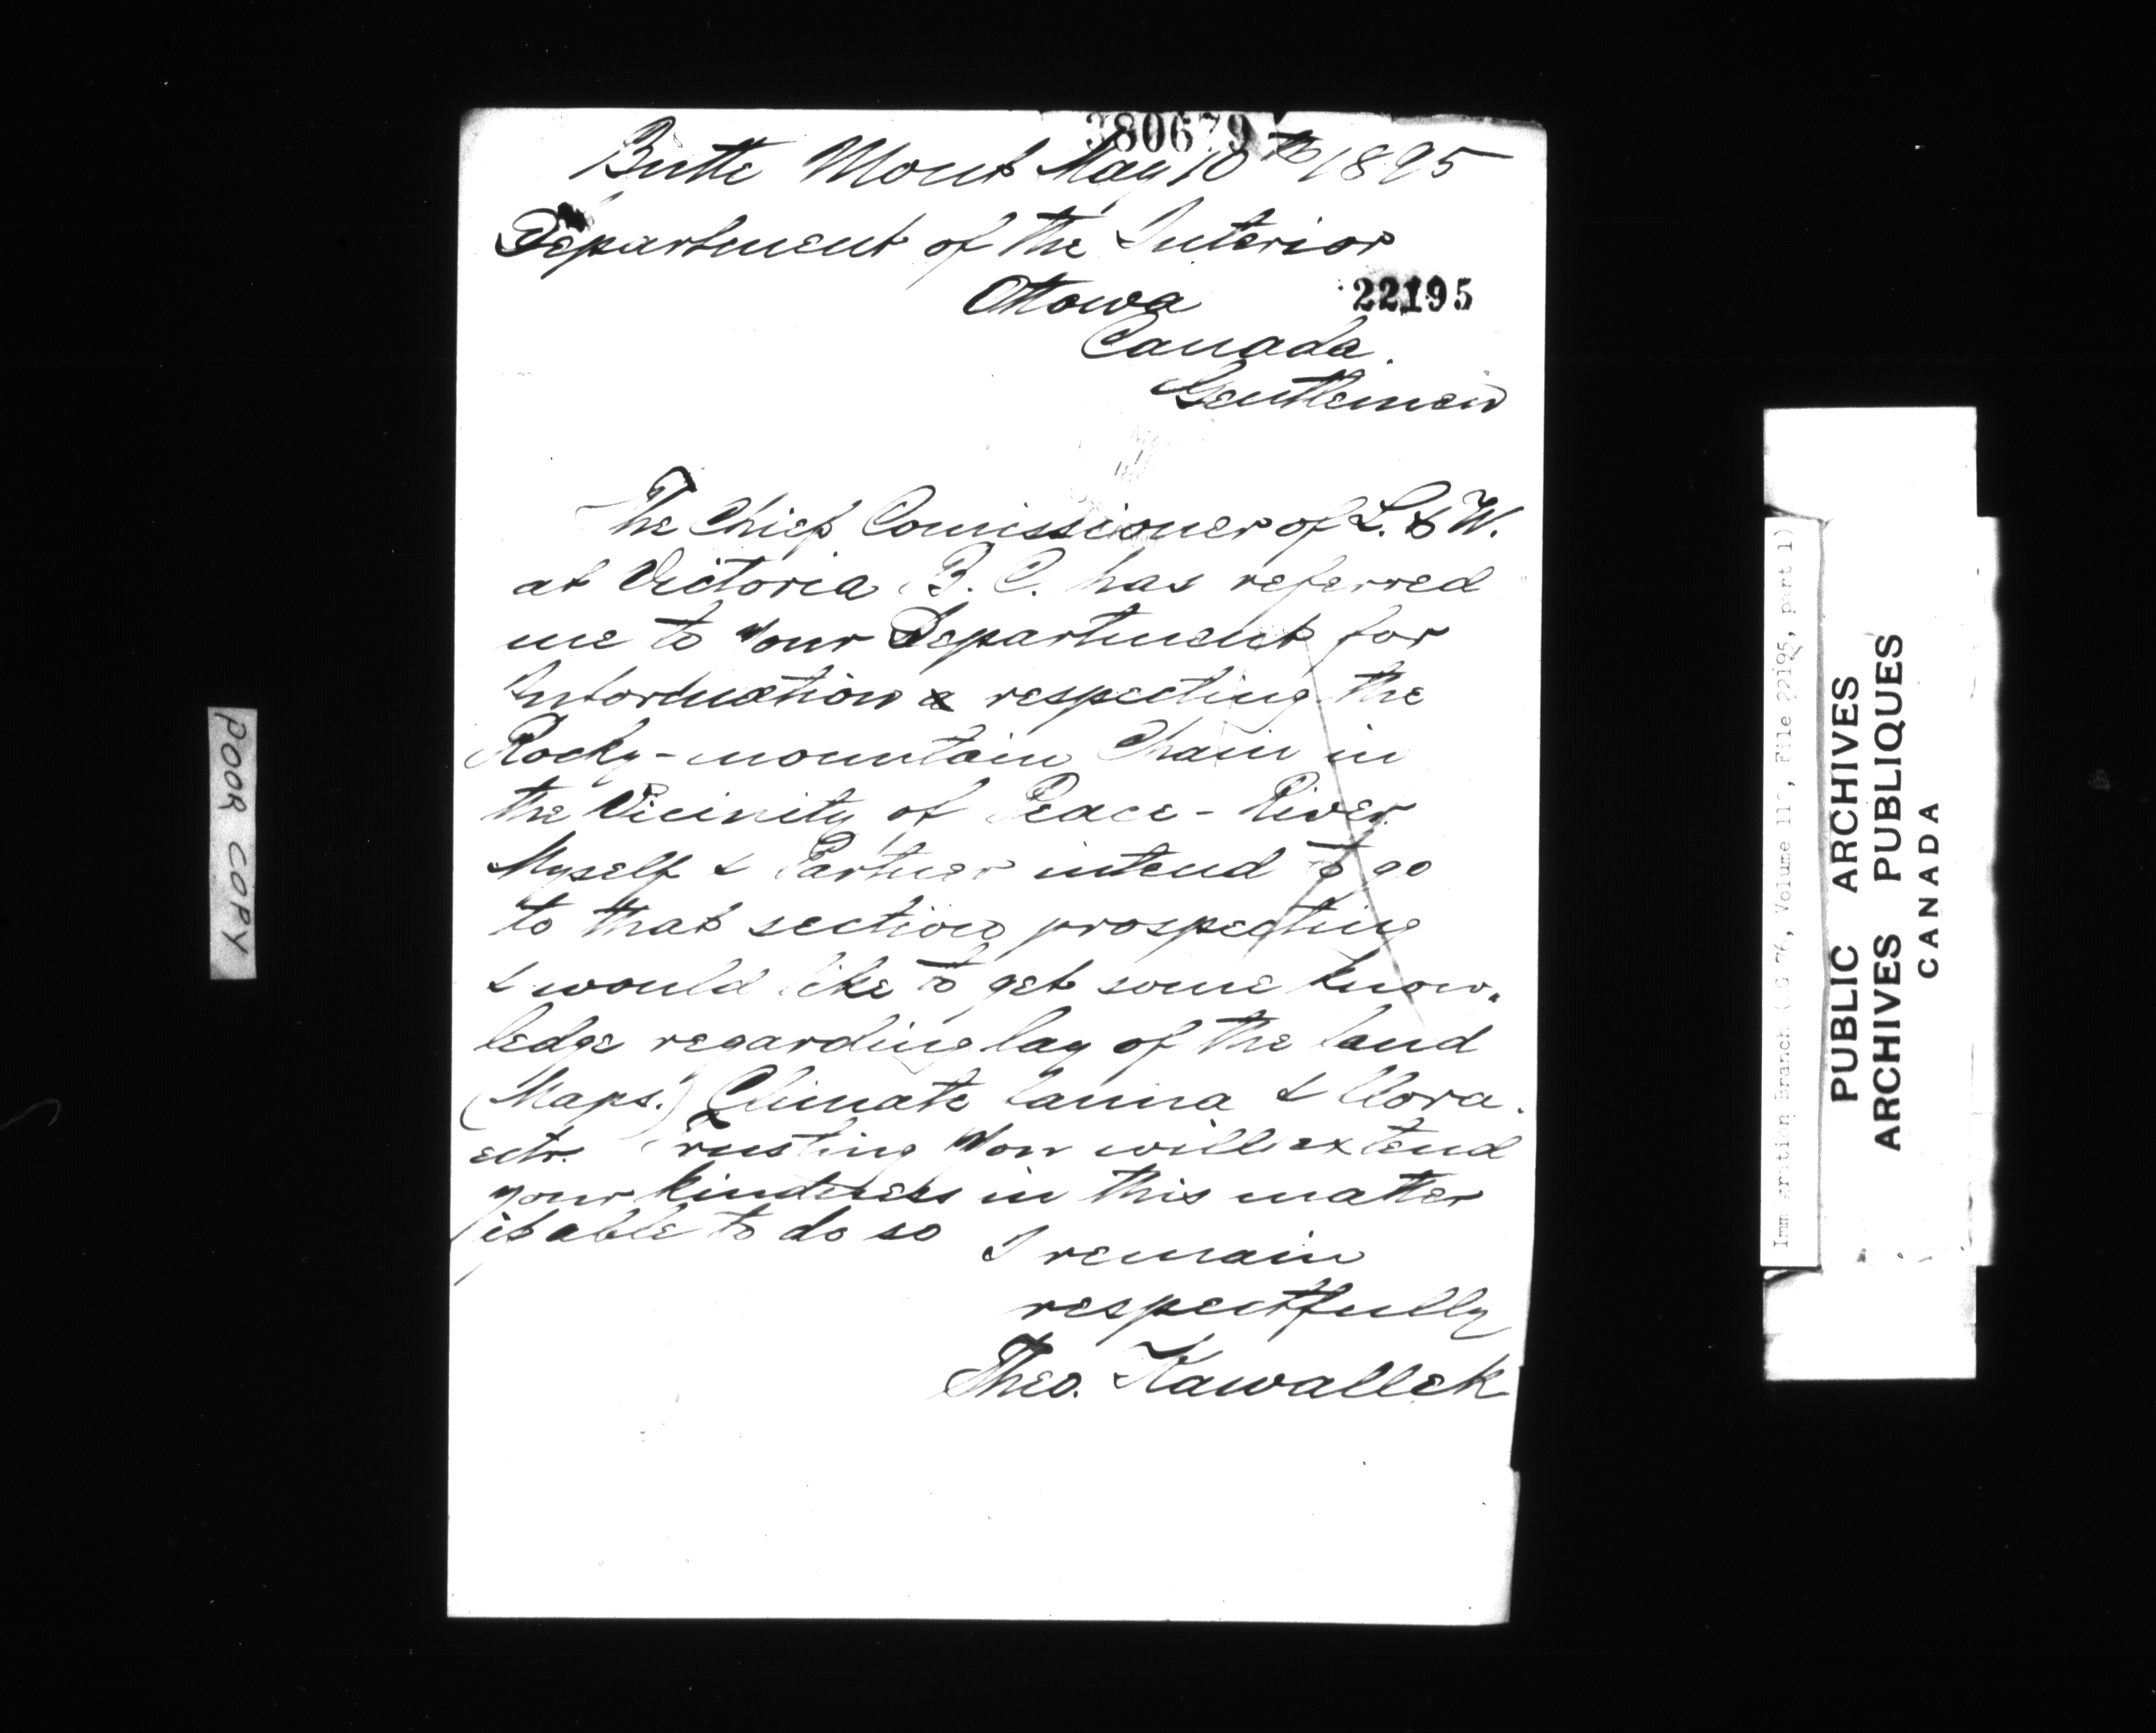 380679
Butte Mont May 10th 1895
Department of the Interior
Ottowa
22195
Canada.
Gentlemen
The Chief Comissioner of L. & W.
at Victoria B. C. has referred
me to Your Department for
Information & respecting the
Rocky-mountain Chain in
the Vicinity of Peace-River
Myself & Partner intend to go
to that section prospecting
& would like to get some know-
ledge regarding lay of the land
(Maps.) Climate fauna & flora.
ectr. Trusting You will extend
your kindness in this matter
if able to do so
I remain
respectfully
Theo. Kawallek
POOR COPY
Immigration Branch (RG 76, Volume 11, File 22195, part 1)
PUBLIC ARCHIVES
ARCHIVES PUBLIQUES
CANADA